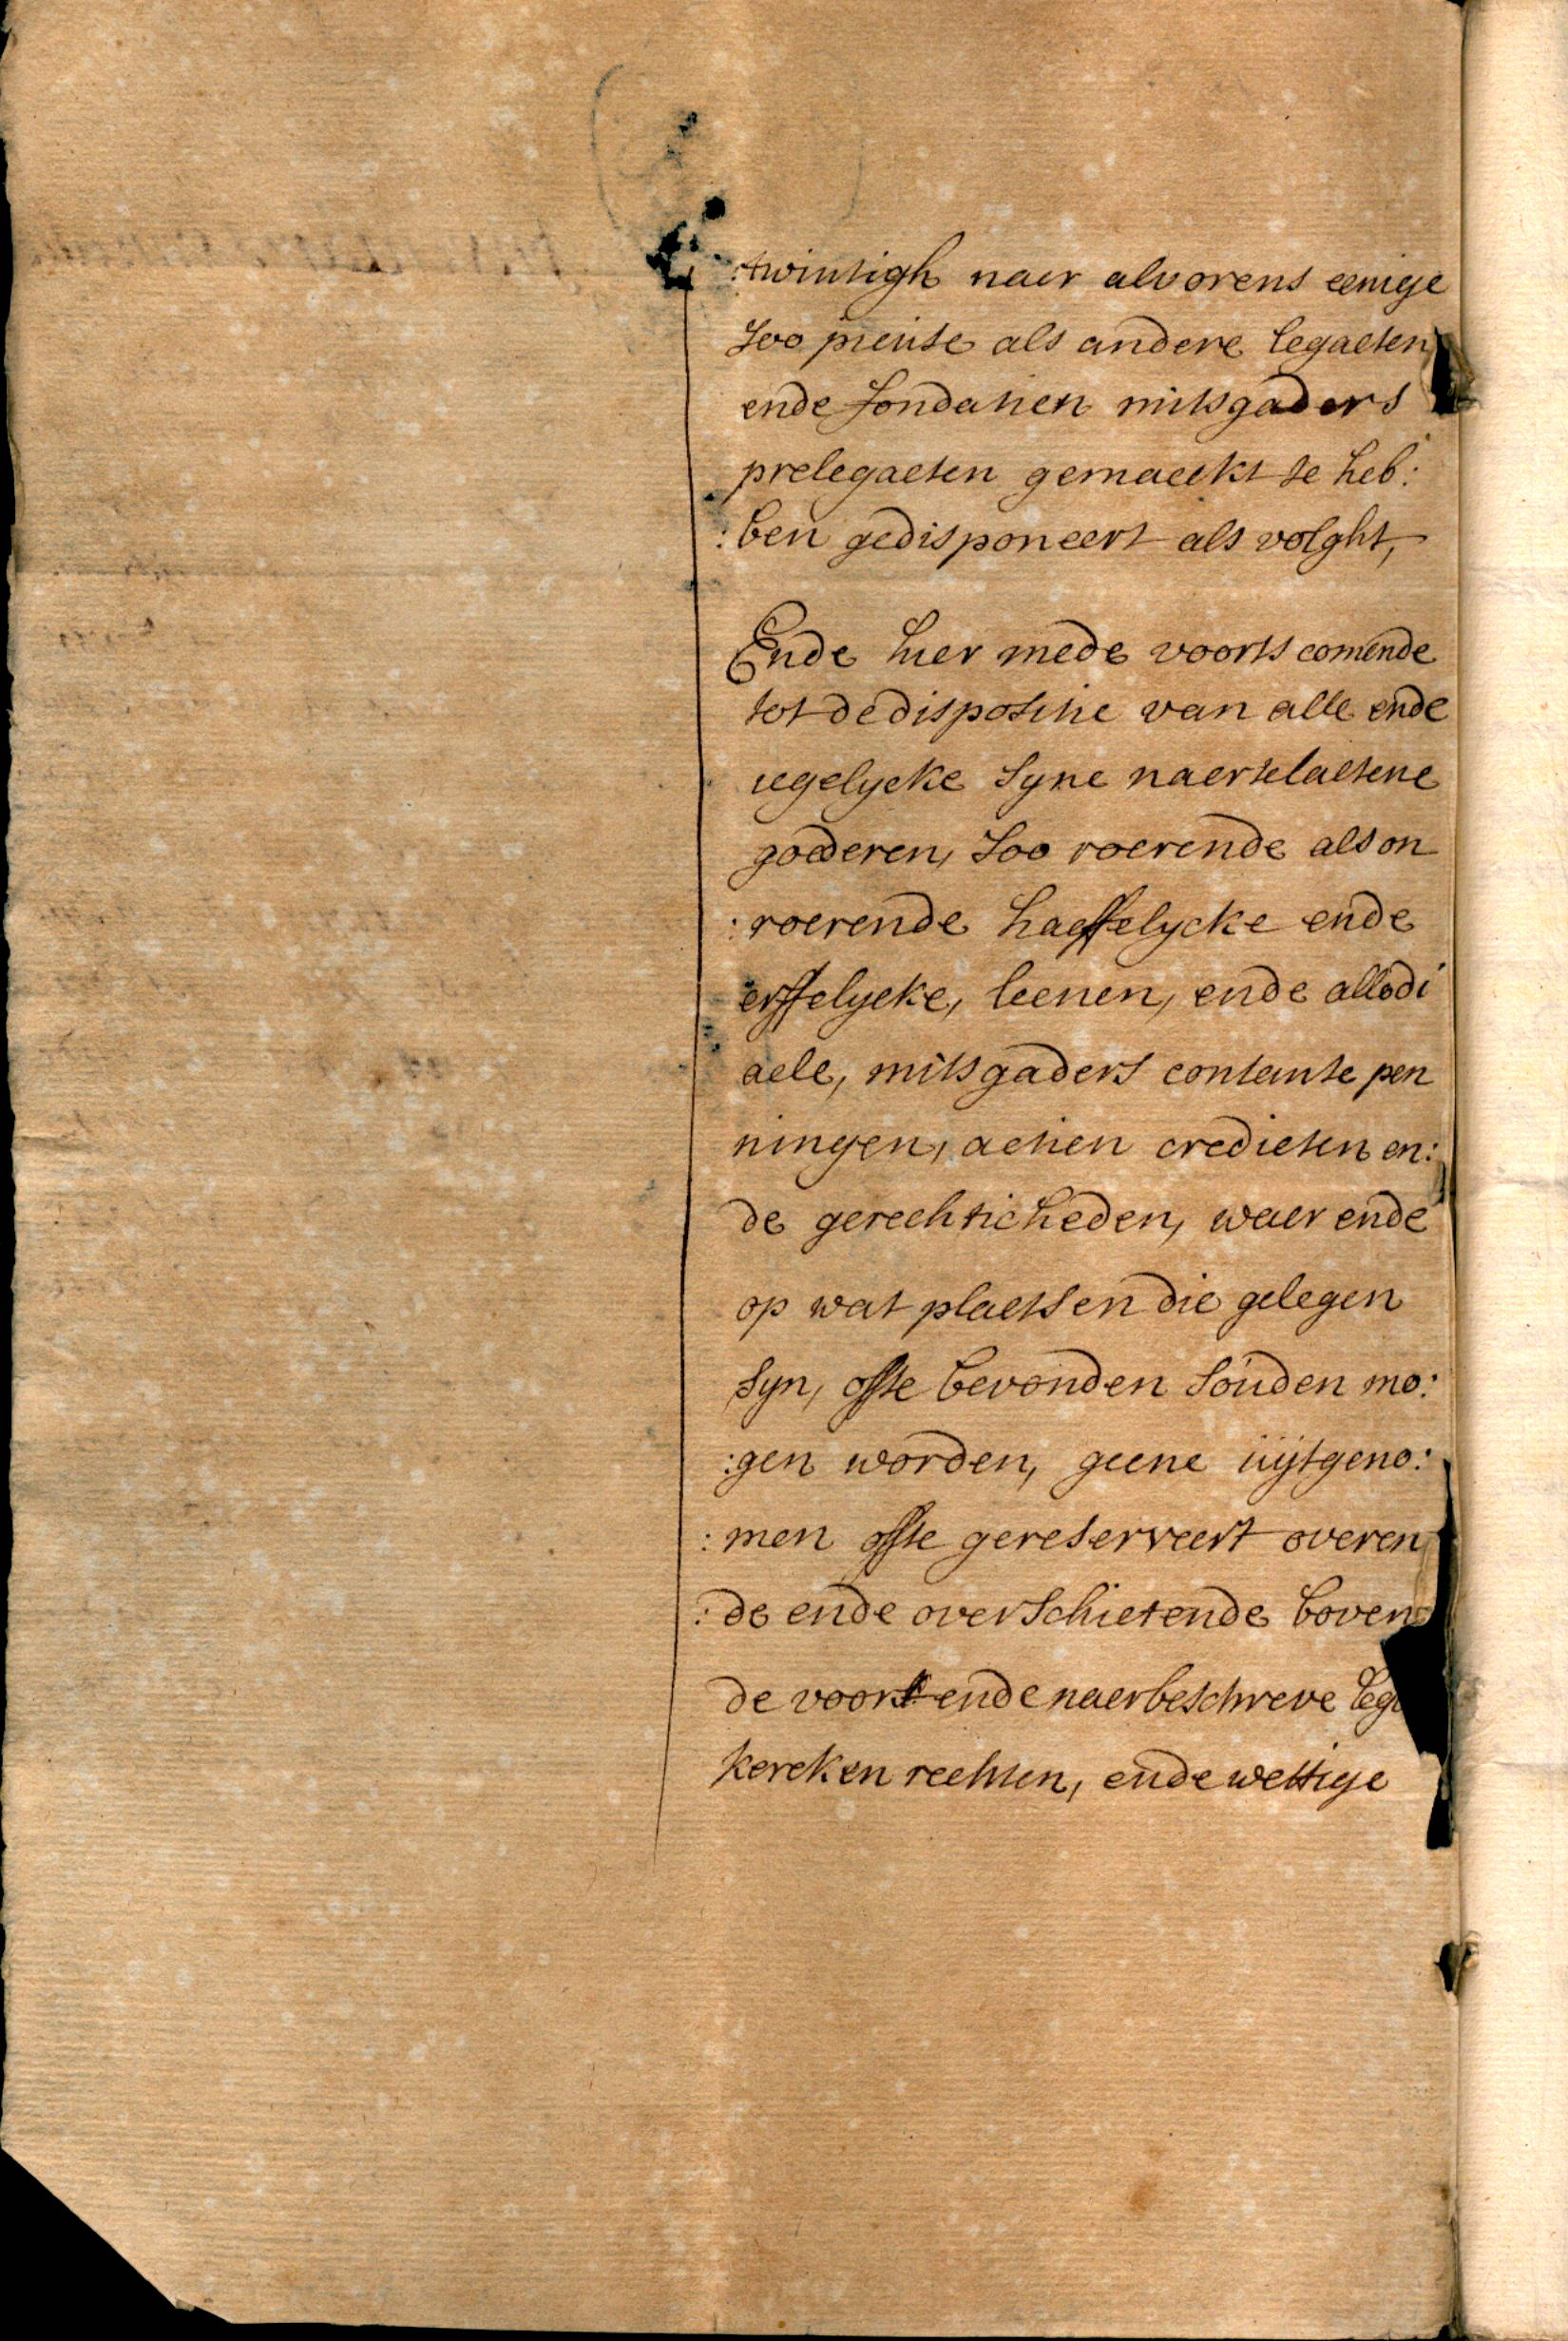 :twintigh naer alvorens eenige
soo pieuse als andere legaeten
ende fondatien mitsgaders
prelegaeten gemaeckt te heb:
:ben gedisponeert als volght,
Ende hier mede voorts comende
tot de dispositie van alle ende
iegelycke syne naertelaetene
goederen, soo roerende als on
:roerende haeffelycke ende
erffelycke, leenen, ende allodi
aele, mitsgaders contante pen
ningen, actien credieten en:
de gerechticheden, waer ende
op wat plaetsen die gelegen
syn, ofte bevonden souden mo:
:gen worden, geene uijtgeno:
:men ofte gereserveert overen
:de ende overschietende boven
de voors. ende naerbeschreve
kercken rechten, ende wettige